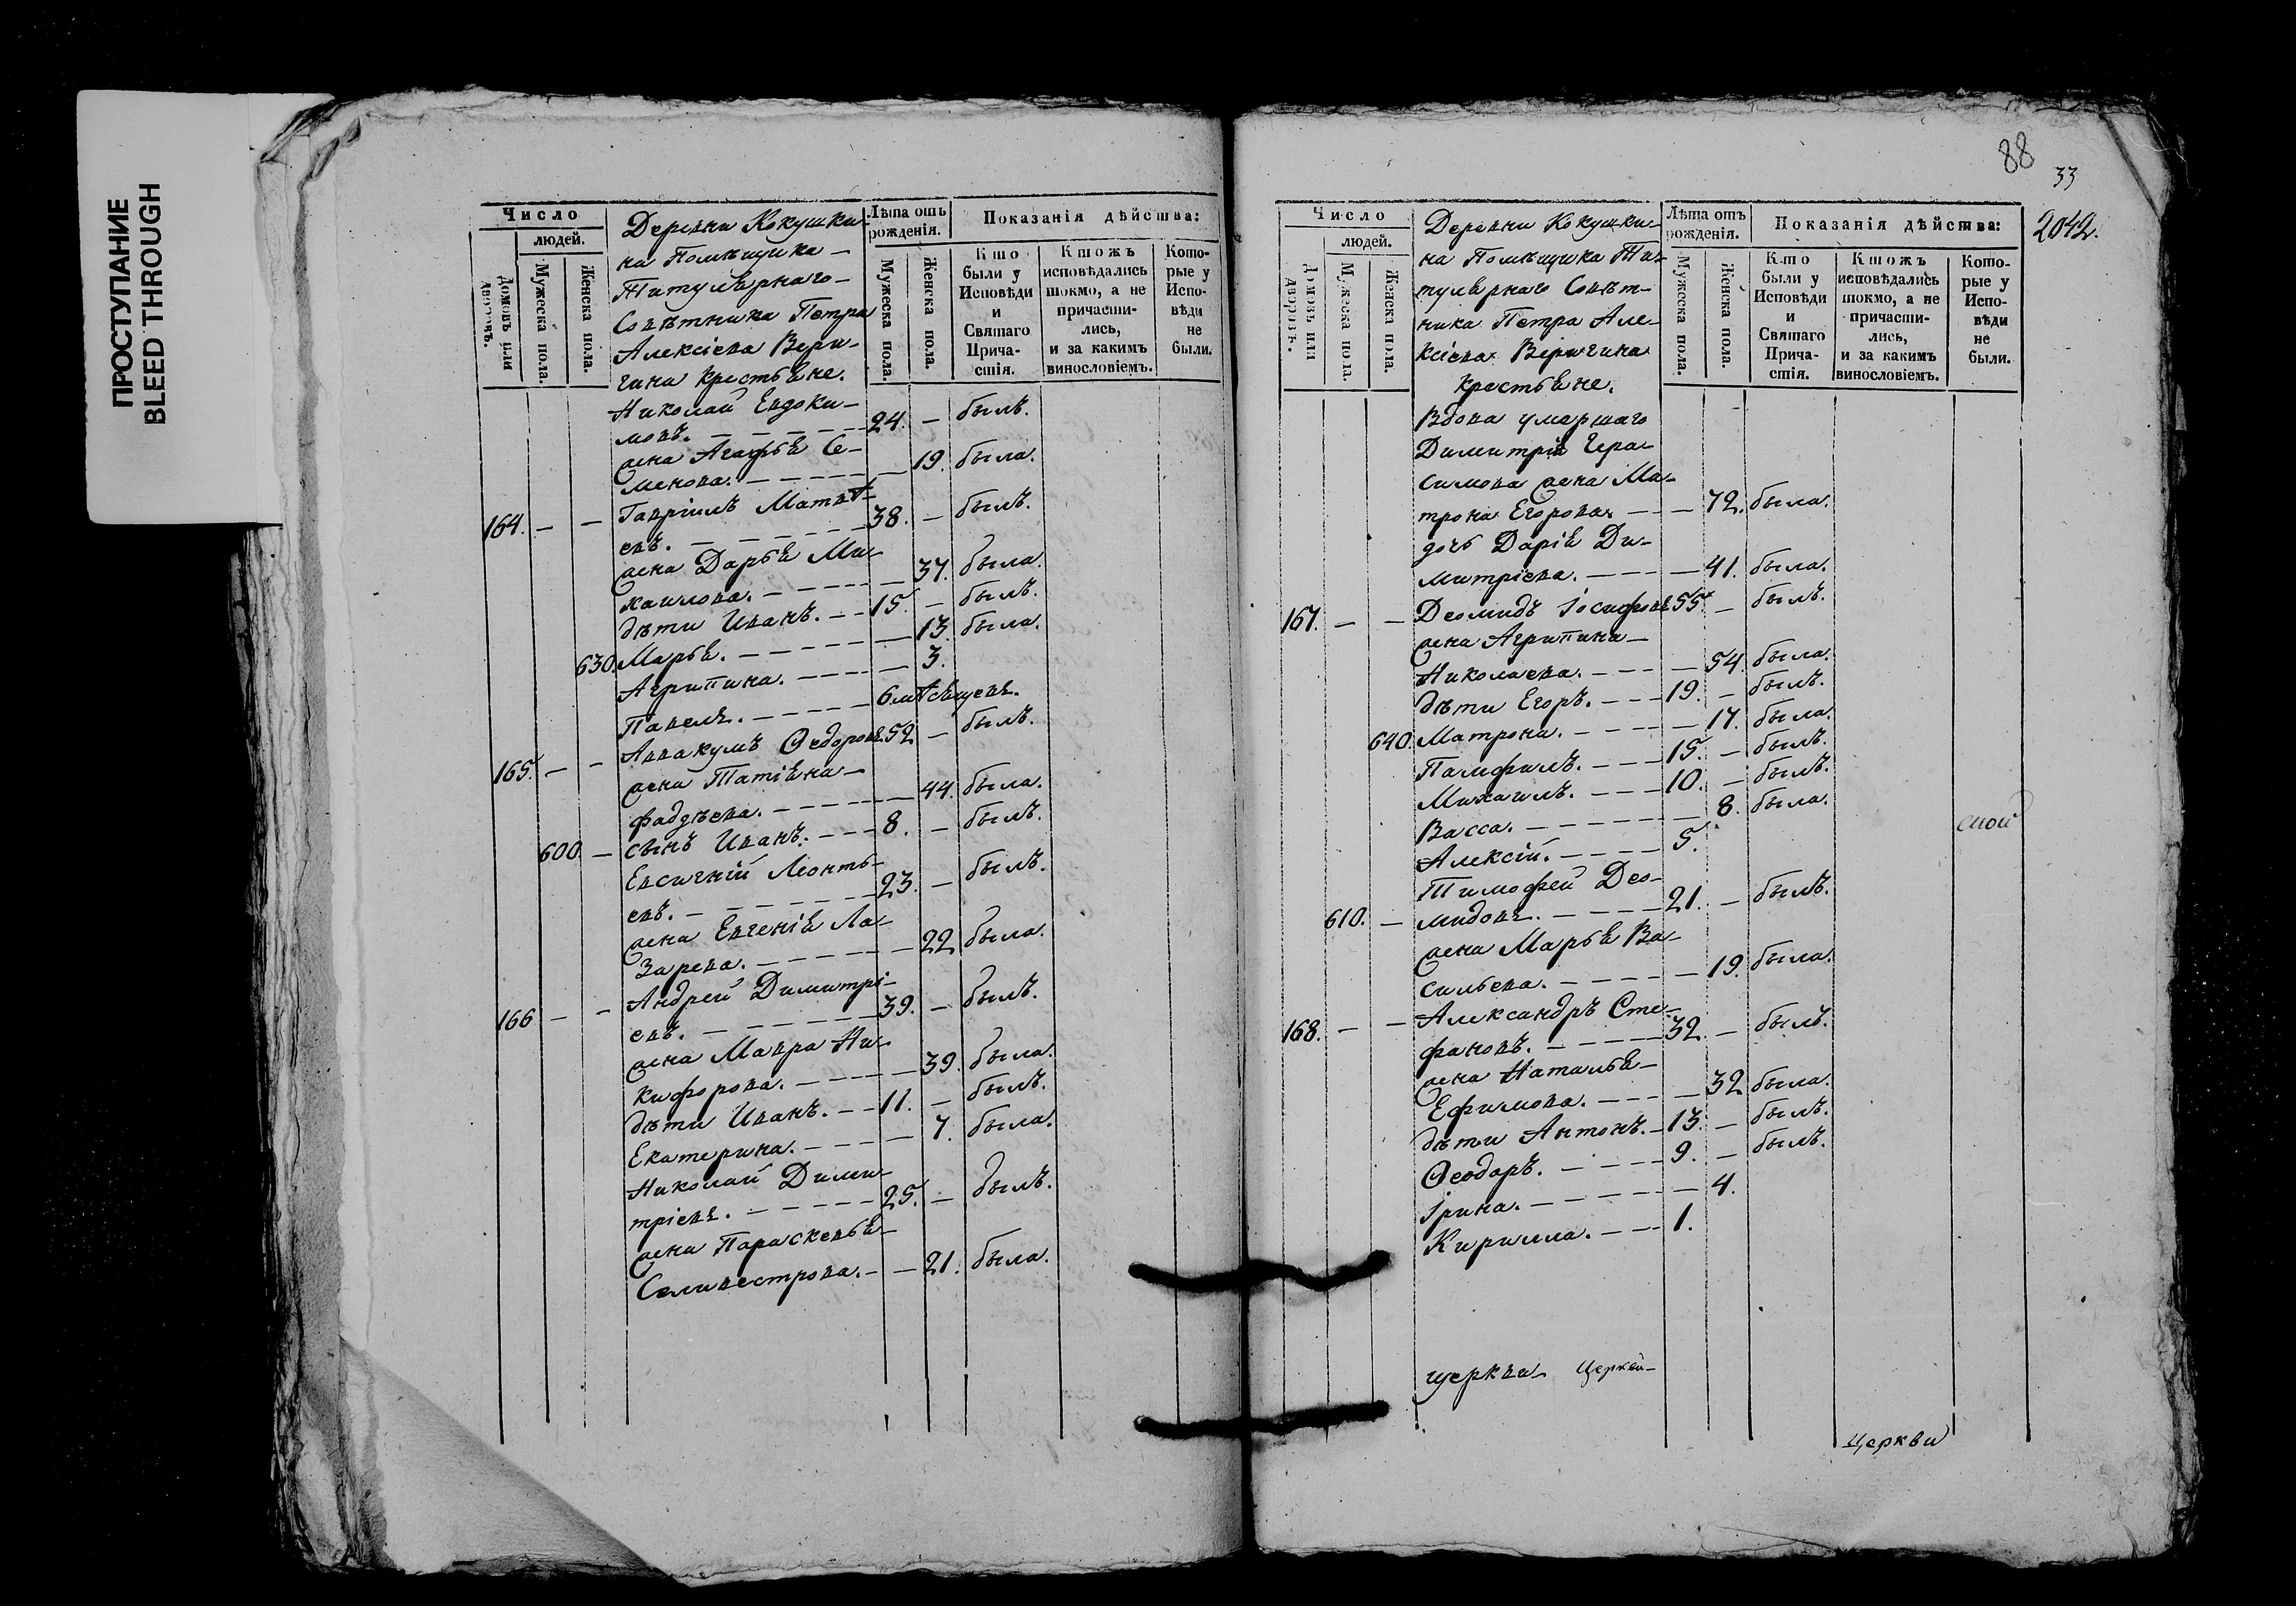 ПРОСТУПАНИЕ
BLEED THROUGH
Число
людей.
Домовъ или дворовъ.
Мужеска пола.
Женска пола.
Деревни Кокушки-
на Помѣщика
Титулярнаго
Совѣтника Петра
Алексіева Вери-
гина крестьяне.
Лѣта отъ рожденія.
Мужеска пола.
Женска пола.
Показанія дѣйства:
Кто были у Исповѣди и Святаго Причастія.
Ктожъ исповѣдались токмо, а не причастились, и за какимъ винословіемъ.
Которые у Исповѣди не были.
Николай Евдоки-
мовъ. 24. — былъ.
жена Агафья Се-
менова. — 19. была.
164. — — Гавріилъ Матвѣ-
евъ. 38. — былъ.
жена Дарья Ми-
хаилова. — 37. была.
дѣти Иванъ. 15. — былъ.
630. Марья. — 13. была.
Агрипина. — 3.
Павелъ. 6 мѣсяцевъ.
165. — — Аввакумъ Ѳедоровъ 52 — былъ.
жена Татіяна
Фадѣева. — 44. была.
600 — сынъ Иванъ. 8. — былъ.
Евсигній Леонть-
евъ. 23. — былъ.
жена Евгенія Ла-
зарева. — 22 была.
166 — — Андрей Димитрі-
евъ. 39. — былъ.
жена Мавра Ни-
кифорова. — 39. была.
дѣти Иванъ. 11. — былъ.
Екатерина. — 7. была.
Николай Дими-
тріевъ. 25. — былъ.
жена Параскевья
Селивестрова. — 21. была.
88
33
2042.
Число
людей.
Домовъ или дворовъ.
Мужеска пола.
Женска пола.
Деревни Кокушки-
на Помѣщика Ти-
тулярнаго Совѣт-
ника Петра Але-
ксіева Веригина
крестьяне.
Лѣта отъ рожденія.
Мужеска пола.
Женска пола.
Показанія дѣйства:
Кто были у Исповѣди и Святаго Причастія.
Ктожъ исповѣдались токмо, а не причастились, и за какимъ винословіемъ.
Которые у Исповѣди не были.
Вдова умершаго
Димитрія Гера-
симова жена Ма-
трона Егорова. — 72. была.
дочь Дарія Ди-
митріева. — 41. была.
167. — — Деомидъ Іосифовъ 55. — былъ.
жена Агрипина
Николаева. — 54. была.
дѣти Егоръ. 19. — былъ.
640. Матрона. — 17. была.
Памфилъ. 15. — былъ.
Михаилъ. 10. — былъ.
Васса. — 8. была.
Алексій. 5.
Тимофей Део-
610. — мидовъ. 21. — былъ.
жена Марья Ва-
сильева. — 19. была.
168. — — Александръ Сте-
фановъ. 32. — былъ.
жена Наталья
Ефимова. — 32 была.
дѣти Антонъ. 13. — былъ.
Ѳеодоръ. 9. — былъ.
Ірина. — 4.
Кирилла. 1.
церкви Церкви
Церкви